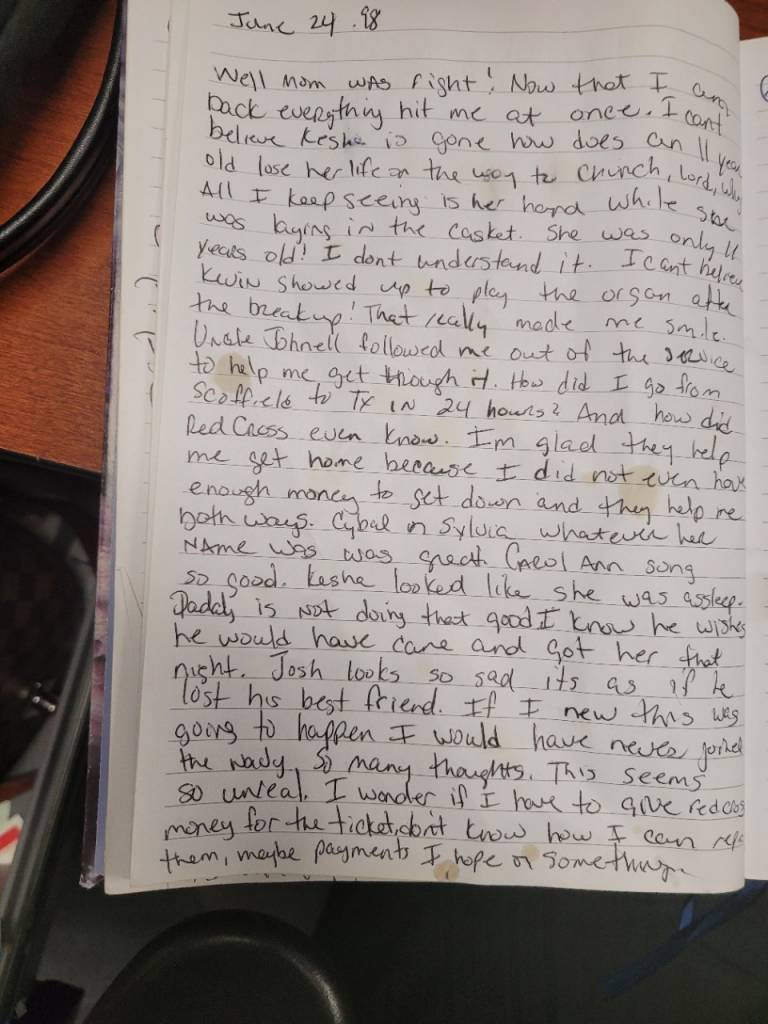 June 24 .98
Well mom was right! Now that I am
back everything hit me at once. I cant
believe Keshe is gone how does an 11 year
old lose her life on the way to Chruch, Lord, Why
All I keep seeing is her hand while she
was laying in the casket. She was only 11
years old! I dont understand it. I cant believe
Kevin showed up to play the organ after
the breakup! That really made me smile.
Uncle Johnell followed me out of the service
to help me get through it. How did I go from
Scoffield to TX IN 24 hours? And how did
Red Cross even know. Im glad they help
me get home because I did not even have
enough money to get down and they help me
both ways. Cybal or Sylvia whatever her
NAme was was great. Carol Ann song
so good. Keshe looked like she was assleep.
Daddy is Not doing that good I know he wishes
he would have came and got her that
night. Josh looks so sad its as if he
lost his best friend. If I new this was
going to happen I would have never joined
the Navy. So many thoughts. This seems
so unreal. I wonder if I have to give red cross
money for the ticket, don't know how I can
them, maybe payments I hope or something.